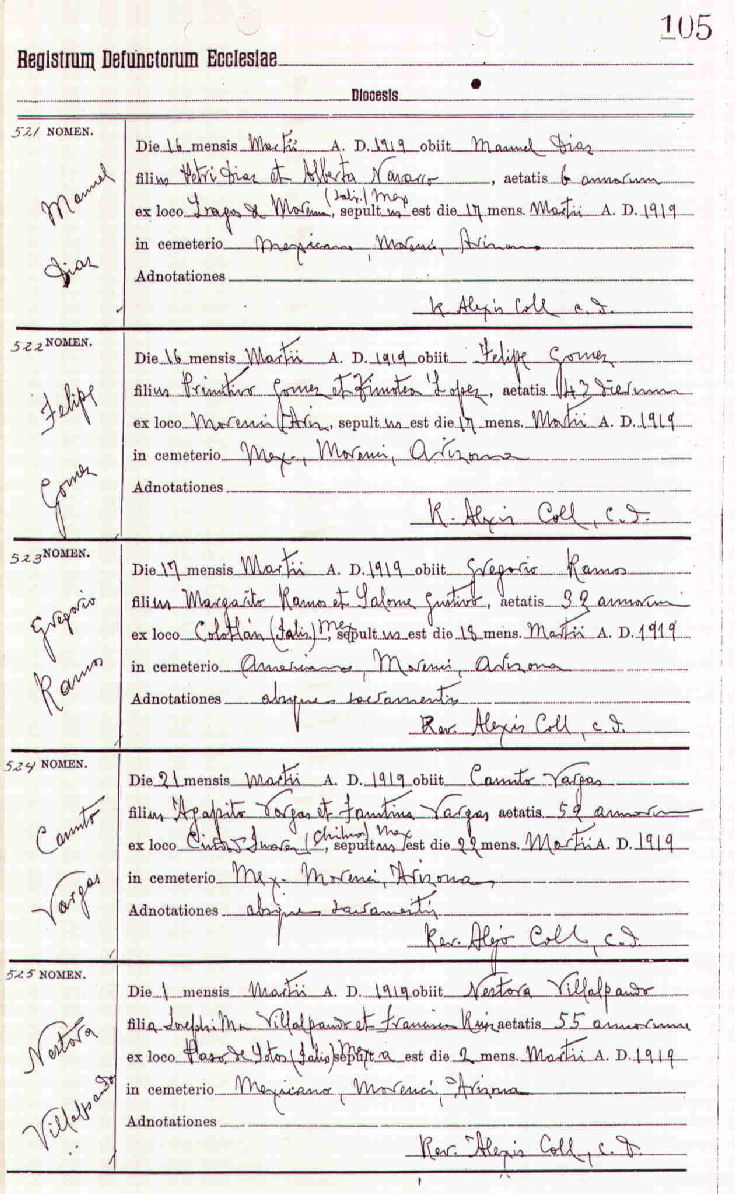 105
Registrum Defunctorum Ecclesiae
Diocesis
521 NOMEN.
Manuel
Diaz
Die 16 mensis Martii A. D. 1919 obiit Manuel Diaz
filius Petri Diaz et Alberta Navarro, aetatis 6 annorum
ex loco Lagos de Moreno, (Jalis.) Mex sepultus est die 17 mens. Martii A. D. 1919
in cemeterio Mexicano, Morenci, Arizona
Adnotationes
Alexis Coll c.d.
522 NOMEN.
Felipe
Gomez
Die 16 mensis Martii A. D. 1919 obiit Felipe Gomez
filius Primitivo Gomez et Timotea Lopez, aetatis 43 dierum
ex loco Morenci (Ariz, sepultus est die 17 mens. Martii A. D. 1919
in cemeterio Mex., Morenci, Arizona
Adnotationes
Alexis Coll, c.d.
523 NOMEN.
Gregorio
Ramos
Die 17 mensis Martii A. D. 1919 obiit Gregorio Ramos
filius Margarito Ramos et Salome, aetatis 39 annorum
ex loco Colotlán (Jalis) Mex, sepultus est die 18 mens. Martii A. D. 1919
in cemeterio Americano, Morenci, Arizona
Adnotationes absque sacramentis
Rev. Alexis Coll, c.d.
524 NOMEN.
Canuto
Vargas
Die 21 mensis Martii A. D. 1919 obiit Canuto Vargas
filius Agapito Vargas et Faustina Vargas aetatis 59 annorum
ex loco (Chihua) Mex, sepultus est die 22 mens. Martii A. D. 1919
in cemeterio Mex. Morenci, Arizona,
Adnotationes absque sacramentis
Rev. Alejo Coll, c.d.
525 NOMEN.
Nestora
Villalpando
Die 1 mensis Martii A. D. 1919 obiit Nestora Villalpando
filia Josephi Ma Villalpando et Francisca Ruiz aetatis 55 annorum
ex loco Paso de Sotos (Jalis) Mex sepulta est die 2 mens. Martii A. D. 1919
in cemeterio Mexicano, Morenci, Arizona
Adnotationes
Rev. Alexis Coll, c.d.